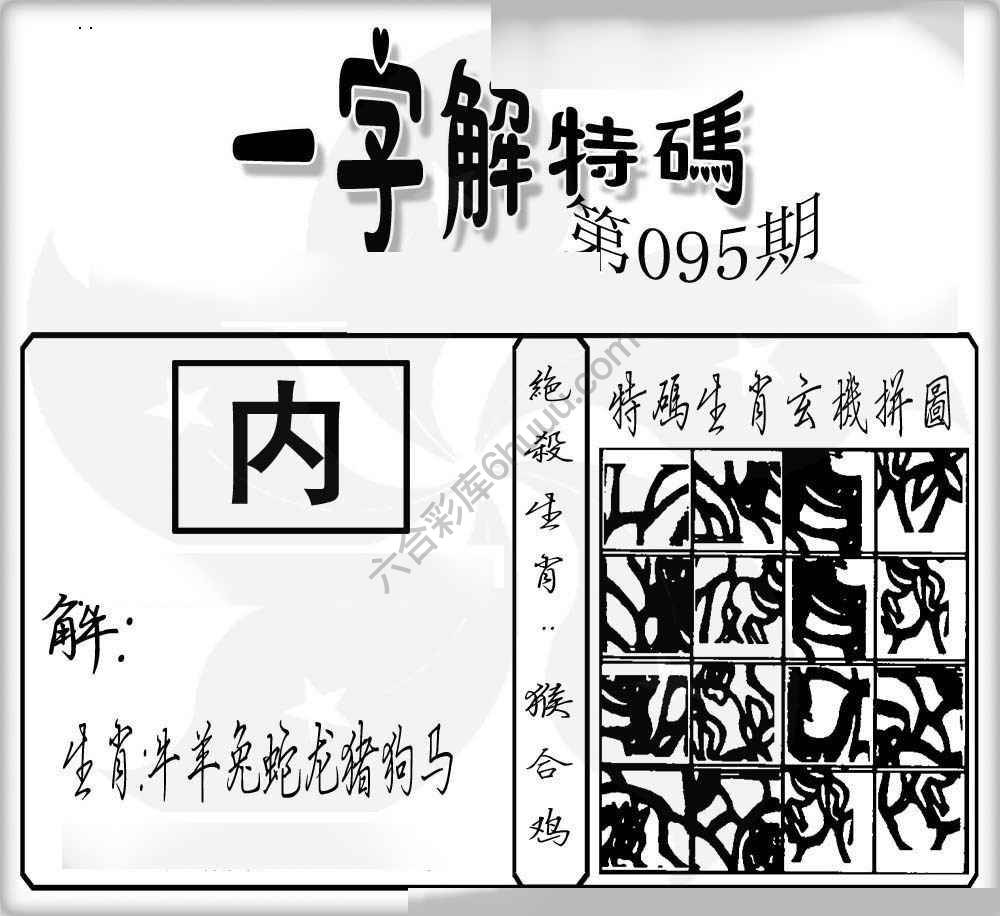 一字解特碼
第095期
内
解:
生肖:牛羊兔蛇龙猪狗马
絶殺生肖:猴合鸡
特碼生肖玄機拼圖
六合彩库6huuu.com